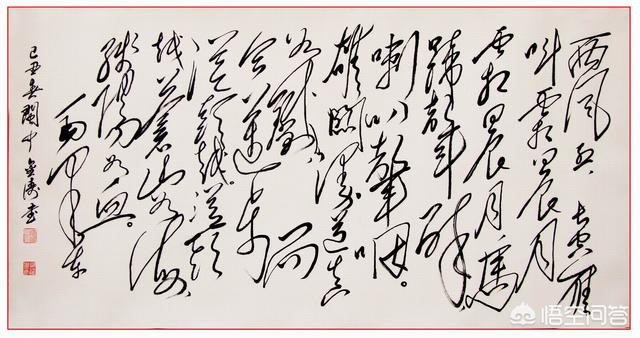 西风烈 长空雁
叫霜晨月
霜晨月马
蹄声碎
喇叭声咽。
雄关漫道真
如铁 而
今迈步
从头越从头
越苍山如海
残阳如血。
己丑春闽中金涛书
悟空问答